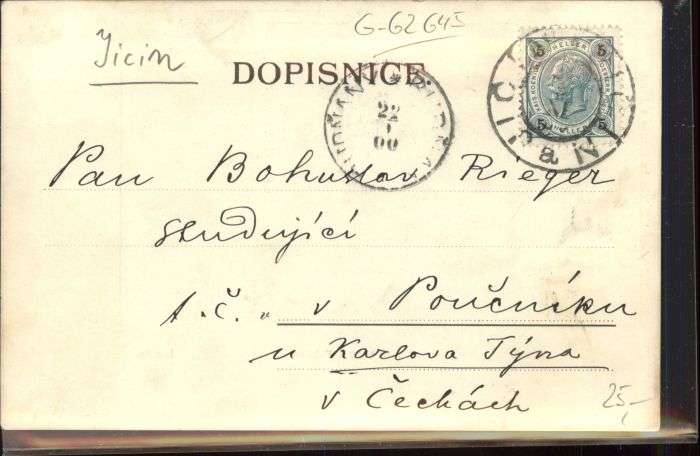 G-62645
Jicin
DOPISNICE.
5 HELLER 5
BUDŇANY * BUDŇAN
22
00
JIČÍN
Pan Bohuslav Rieger
studující
t.č. v Poučníku
u Karlova Týna
v Čechách
25,-